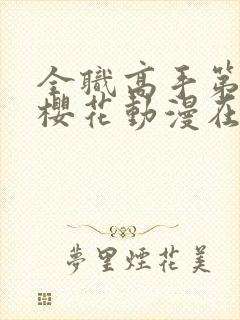 全職高手第
櫻花動漫在
夢里煙花美